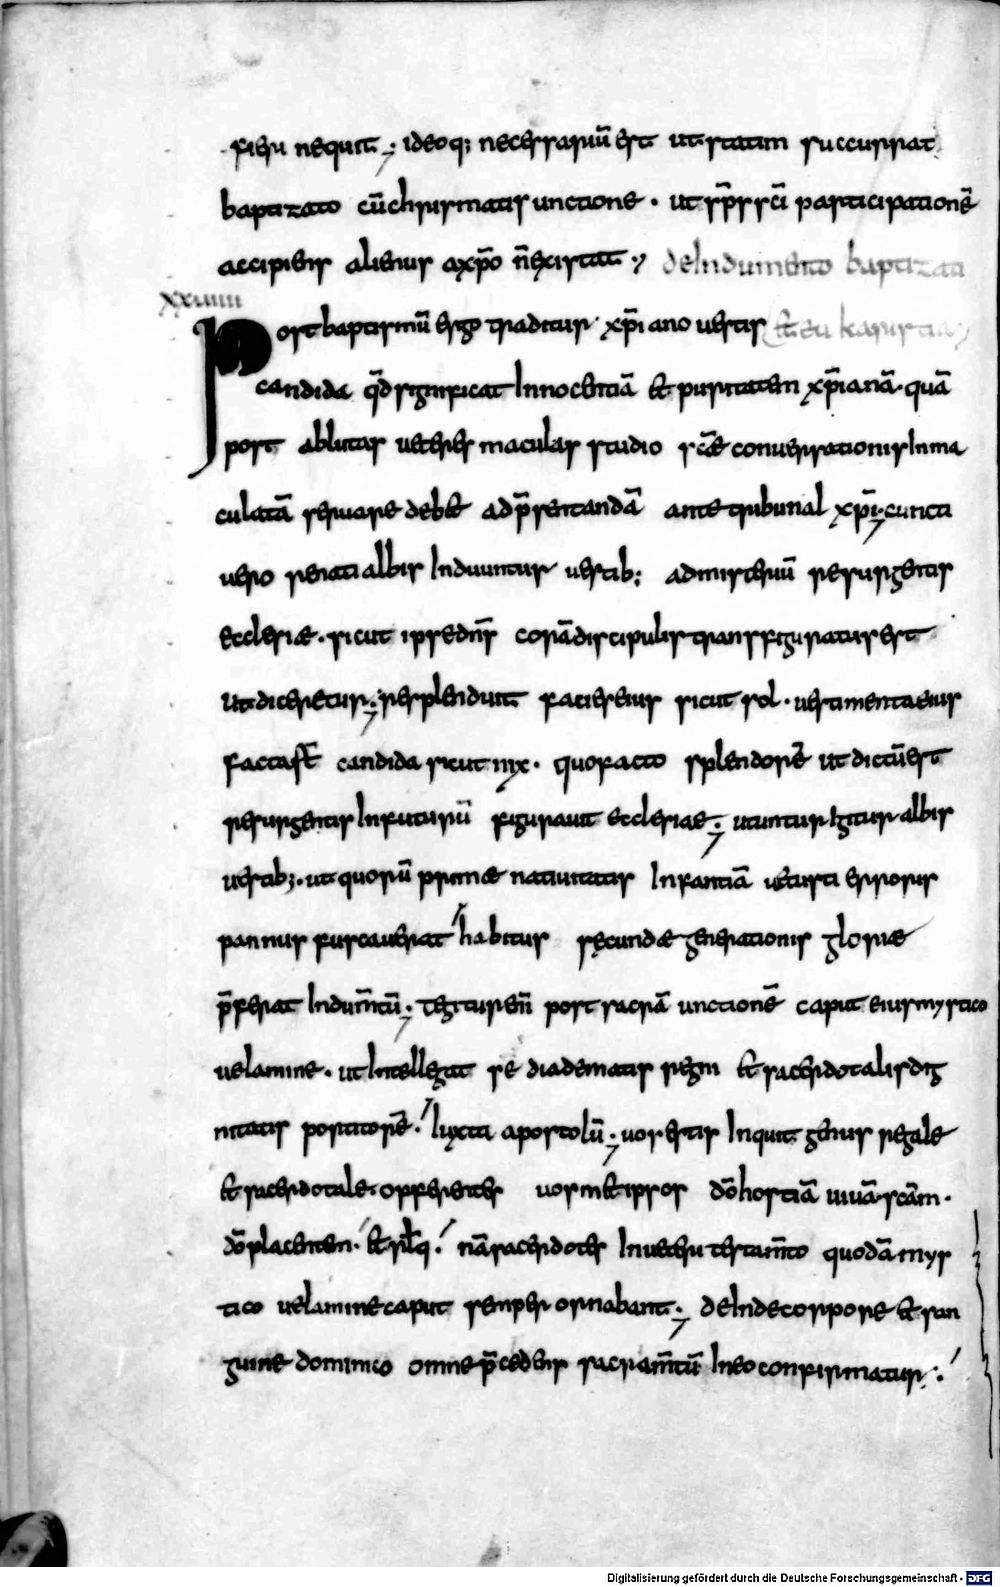 fieri nequit; ideoq; necessariū est ut statim succurrat
baptizato cū chrismatis unctione · ut sp̄s sc̄i participationē
accipiens alienus a xp̄o n̄ existat ;, de Indumento baptizati
xxviiii
Post baptismū ergo traditur xp̄iano uestis et eukaristia
candida q̄d significat Innocentiā et puritatem xp̄ianā · quā
post ablutas ueteres maculas studio sc̄e conuersationis Inma
culatā seruare debet ad p̄sentandā ante tribunal xp̄i; cuncti
uero renati albis Induuntur uestib; ad misteriū resurgentis
ecclesiæ · sicut ipse dn̄s corā discipulis transfiguratus est
ut diceretur; resplenduit facies eius sicut sol · uestimenta eius
facta st̄ candida sicut nix · quo facto splendorē ut dictū est
resurgentis In futurū figurauit ecclesiae; utuntur Igitur albis
uestib; · ut quorū primæ natiuitatis Infantiā uetusti erroris
pannus fuscauerat habitus secundæ generationis gloriæ
p̄ferat Indum̄tū; Tegitur eni post sacrā unctionē caput eius mystico
uelamine · ut Intellegat se diadematis regni et sacerdotalis dig
nitatis portitorē · Iuxta apostolū; uos estis Inquit genus regale
et sacerdotale · offerentes uosmet ipsos dō hostiā uiuā · sc̄am ·
dō placentem · et rl̄q · nā sacerdotes In ueteri testam̄to quodā mys
tico uelamine caput semper ornabant; deInde corpore et san
guine dominico omne p̄cedens sacram̄tū In eo confirmatur ·
Digitalisierung gefördert durch die Deutsche Forschungsgemeinschaft - DFG